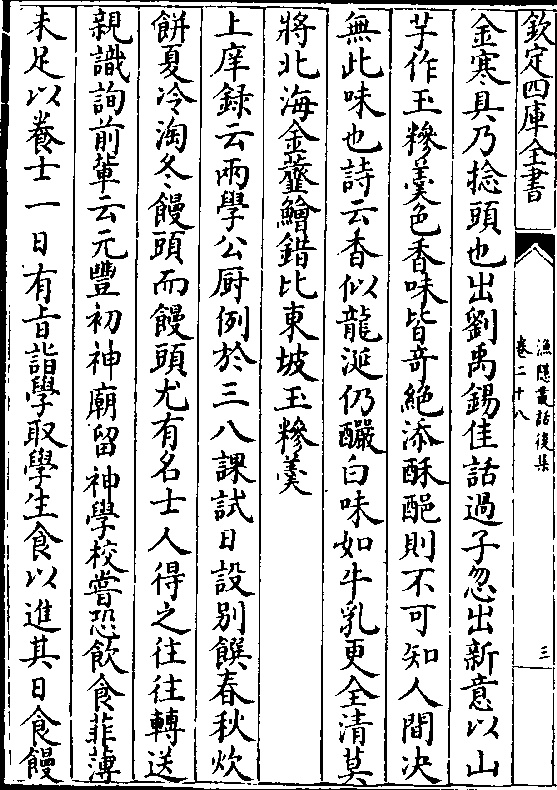 欽定四庫全書
漁隱叢話後集
卷二十八
三
金寒具乃捻頭也出劉禹錫佳話過子忽出新意以山
芋作玉糝羹色香味皆奇絶添酥酏則不可知人間决
無此味也詩云香似龍涎仍釅白味如牛乳更全清莫
將北海金虀鱠錯比東坡玉糝羹
上庠録云兩學公厨例於三八課試日設别饌春秋炊
餅夏冷淘冬饅頭而饅頭尤有名士人得之往往轉送
親識詢前輩云元豐初神廟留神學校嘗恐飲食菲薄
未足以養士一日有旨詣學取學生食以進其日食饅